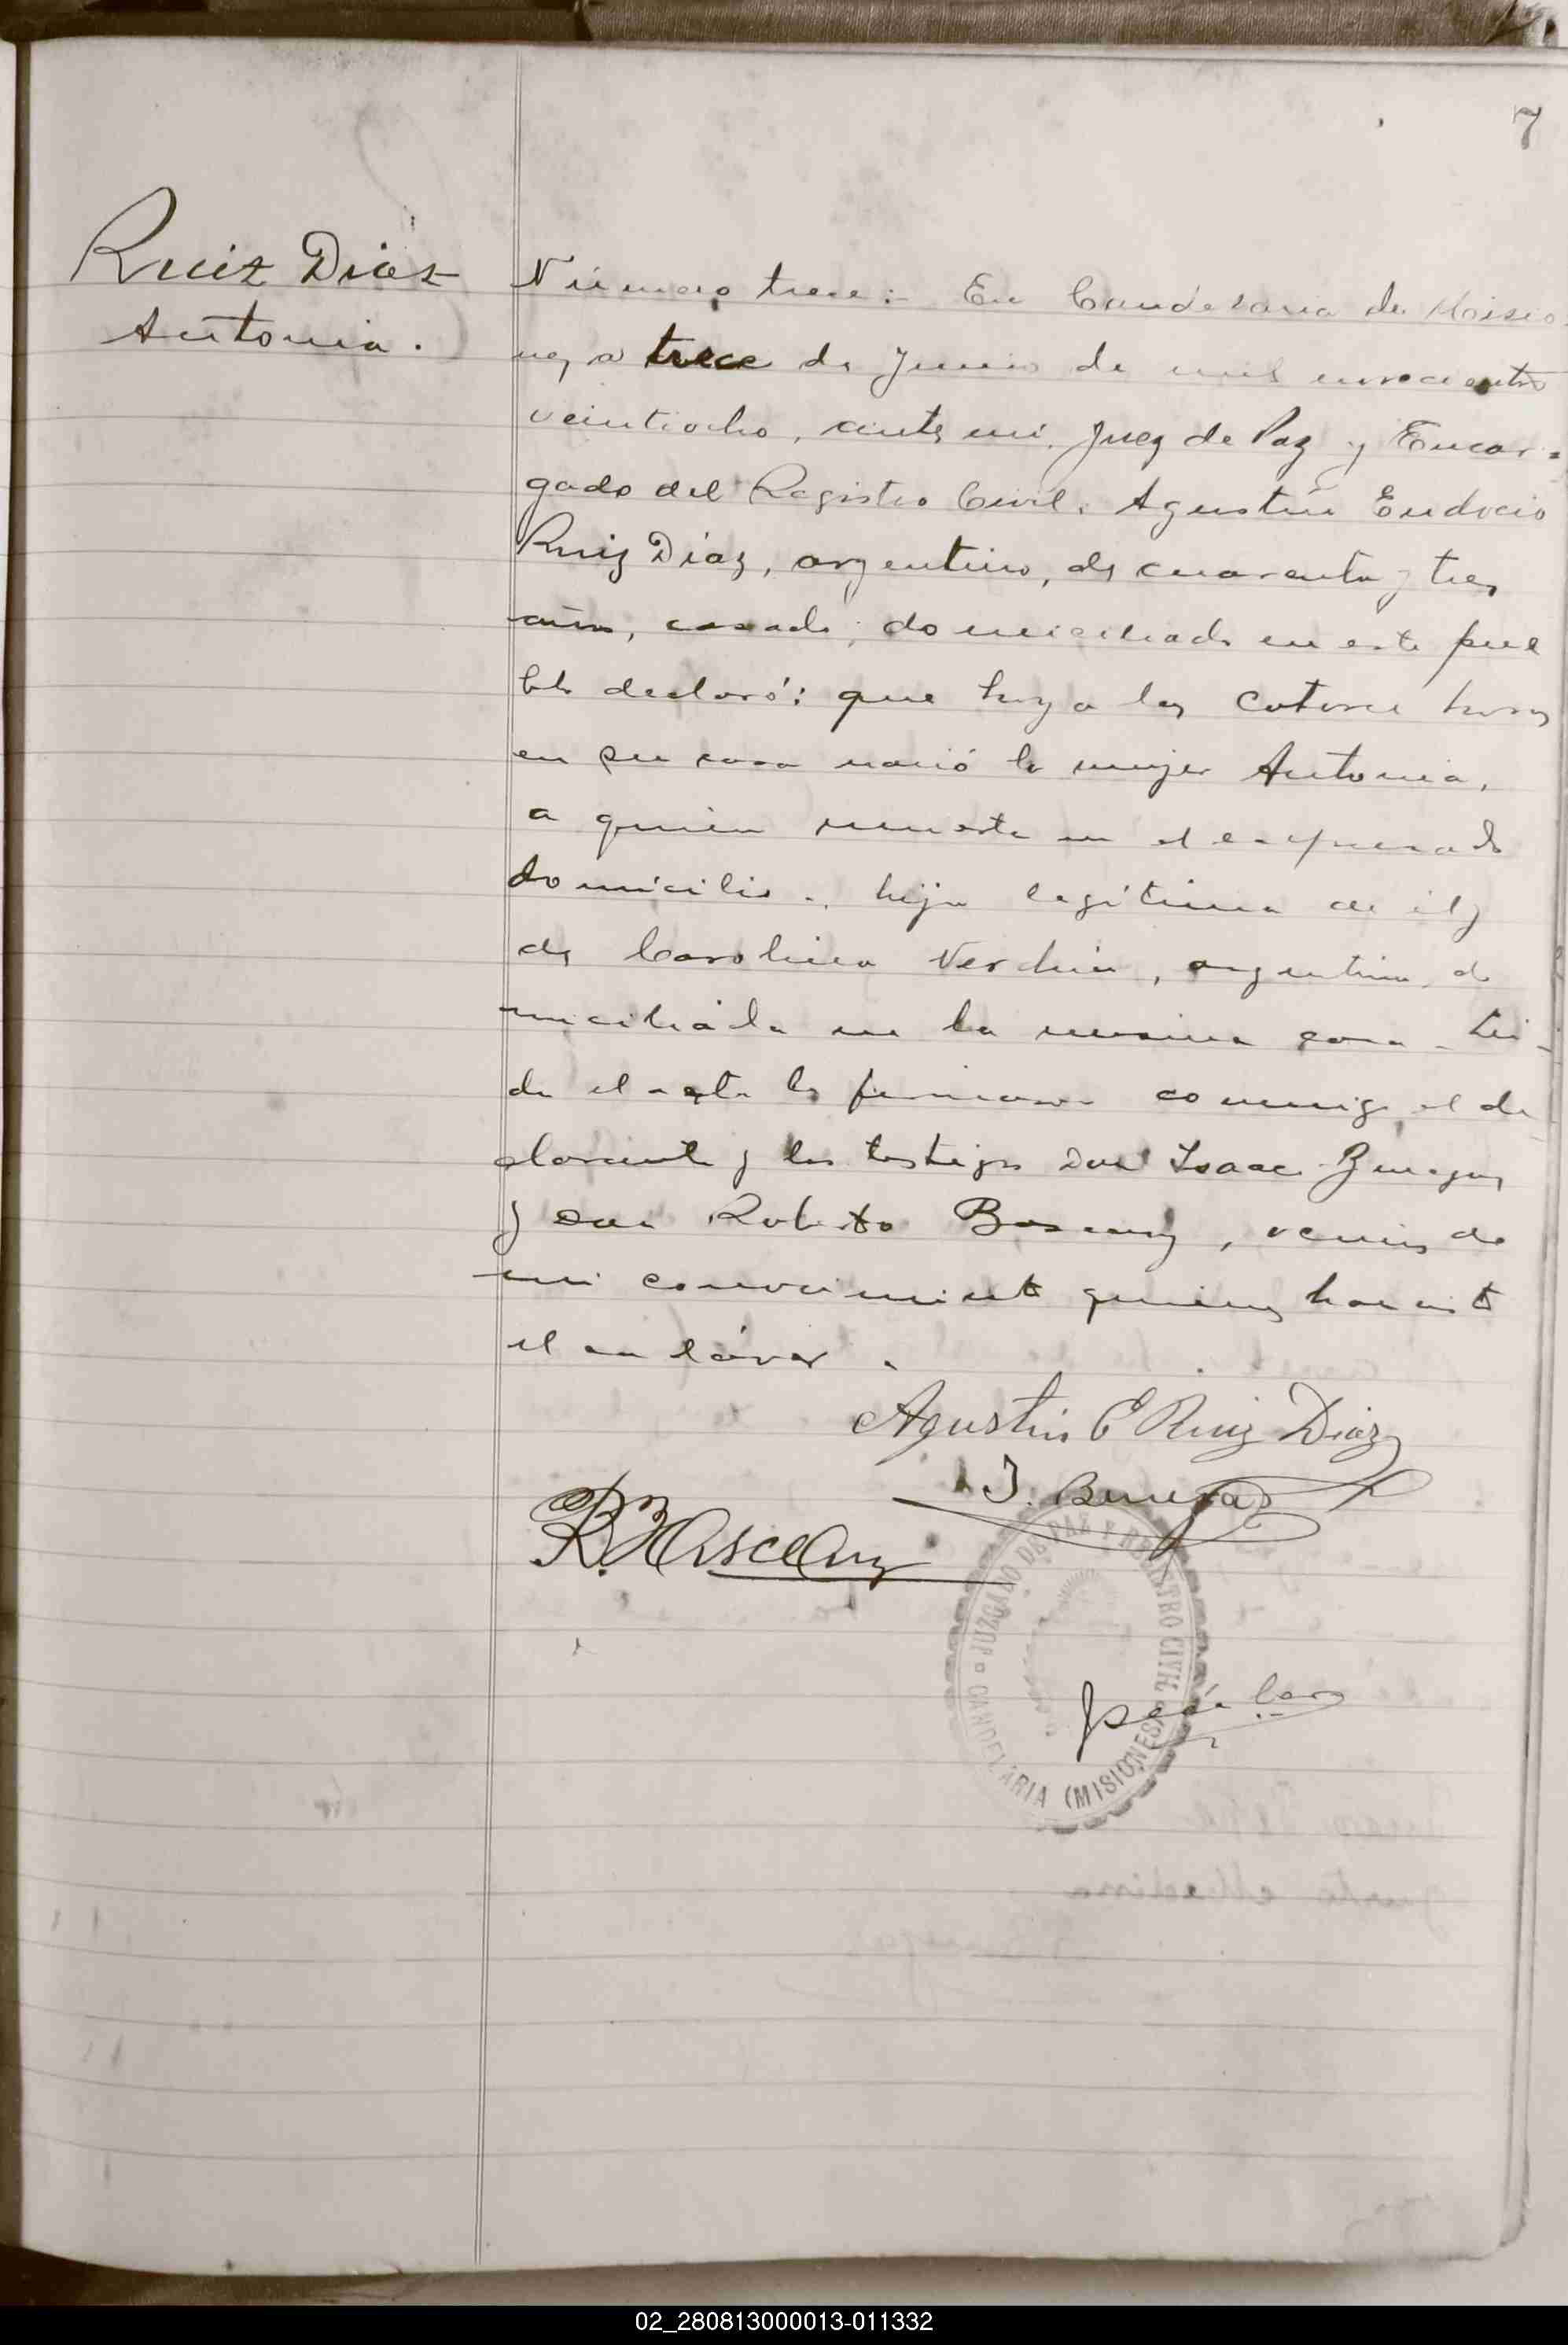 7
Ruiz Diaz
Antonia.
Número trece:- En Candelaria de Misio-
nes, a trece de Junio de mil novecientos
veintiocho, ante mi, Juez de Paz y Encar-
gado del Registro Civil, Agustín Eudocio
Ruiz Díaz, argentino, de cuarenta y tres
años, casado, domiciliado en este pue
blo declaró: que hoy a las catorce horas
en su casa nació la mujer Antonia,
a quien en el expresado
domicilio, hija legítima de él y
de Carolina, argentina, do
miciliada en la misma casa. Lei-
da el acta la firmaron conmigo, el de
clarante y los testigos Don Isaac Benegas
y Don Roberto, vecinos de
mi conocimiento quienes han visto
el
Agustín E Ruiz Diaz
I. Benegas
JUZGADO DE PAZ Y REGISTRO CIVIL
CANDELARIA (MISIONES)
02_280813000013-011332